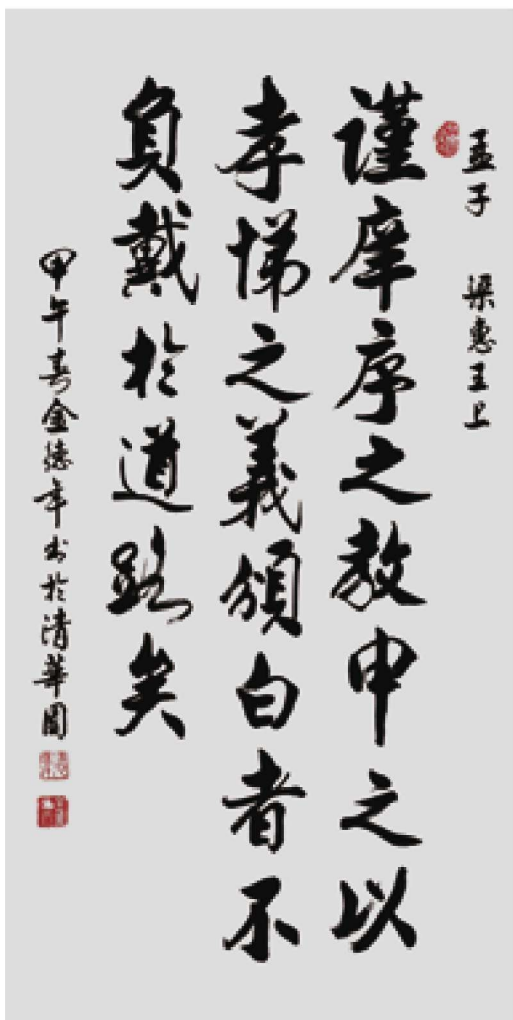 孟子 梁惠王上
謹庠序之教申之以
孝悌之義頒白者不
負戴於道路矣
甲午春金德年书於清華園